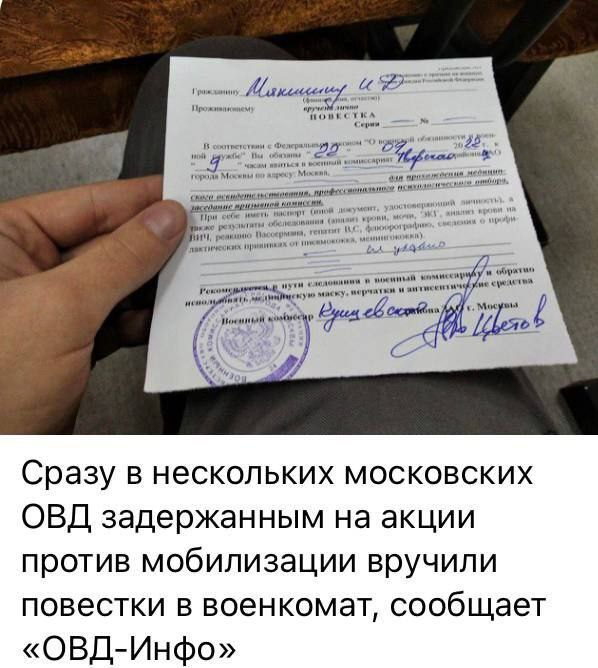 Гражданину Мякишину И Д
(фамилия, имя, отчество)
Проживающему вручена лично
ПОВЕСТКА
Серия № 
В соответствии с Федеральным законом "О воинской обязанности и воен-
ной службе" Вы обязаны "22" 09 2022 г. к
9 часам явиться в военный комиссариат Тверского района ЦАО
города Москвы по адресу: Москва, для прохождения медицин-
ского освидетельствования, профессионального психологического отбора,
заседание призывной комиссии.
При себе иметь паспорт (иной документ, удостоверяющий личность), а
также результаты обследования (анализ крови, мочи, ЭКГ, анализ крови на
ВИЧ, реакцию Вассермана, гепатит В,С, флюорографию, сведения о профи-
лактических прививках от пневмококка, менингококка).
Рекомендуется в пути следования в военный комиссариат и обратно
использовать медицинскую маску, перчатки и антисептические средства
Военный комиссар района г. Москвы
Цветов
Сразу в нескольких московских
ОВД задержанным на акции
против мобилизации вручили
повестки в военкомат, сообщает
«ОВД-Инфо»